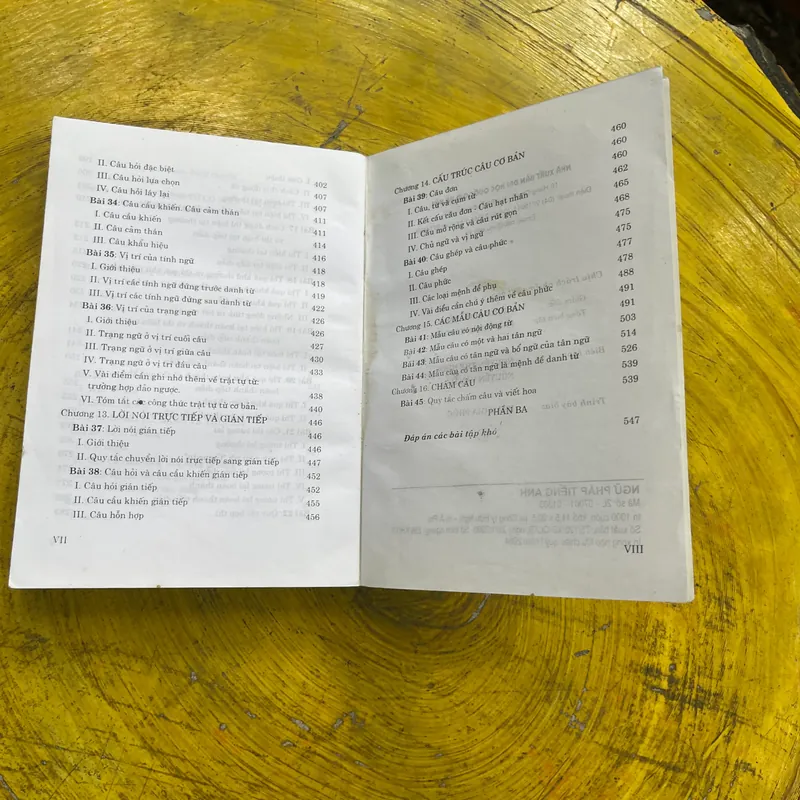 II. Câu hỏi đặc biệt
III. Câu hỏi lựa chọn 402
IV. Câu hỏi láy lại 407
Bài 34: Câu cầu khiến. Câu cảm thán 407
I. Câu cầu khiến 411
II. Câu cảm thán 411
III. Câu khẩu hiệu 414
Bài 35: Vị trí của tính ngữ 416
I. Giới thiệu 418
II. Vị trí các tính ngữ đứng trước danh từ 418
III. Vị trí các tính ngữ đứng sau danh từ 419
Bài 36: Vị trí của trạng ngữ 422
I. Giới thiệu 426
II. Trạng ngữ ở vị trí cuối câu 426
III. Trạng ngữ ở vị trí giữa câu 427
IV. Trạng ngữ ở vị trí đầu câu 430
V. Vài điểm cần ghi nhớ thêm về trật tự từ: 433
trường hợp đảo ngược.
VI. Tóm tắt các công thức trật tự từ cơ bản. 438
Chương 13. LỜI NÓI TRỰC TIẾP VÀ GIÁN TIẾP 440
Bài 37: Lời nói gián tiếp 446
I. Giới thiệu 446
II. Quy tắc chuyển lời nói trực tiếp sang gián tiếp 447
Bài 38: Câu hỏi và câu cầu khiến gián tiếp 452
I. Câu hỏi gián tiếp 452
II. Câu cầu khiến gián tiếp 455
III. Câu hỗn hợp 456
VII
Chương 14. CẤU TRÚC CÂU CƠ BẢN 460
Bài 39: Câu đơn 460
I. Câu, từ và cụm từ 460
II. Kết cấu câu đơn - Câu hạt nhân 462
III. Câu mở rộng và câu rút gọn 465
IV. Chủ ngữ và vị ngữ 468
Bài 40: Câu ghép và câu phức 475
I. Câu ghép 475
II. Câu phức 477
III. Các loại mệnh đề phụ 478
IV. Vài điểm cần chú ý thêm về câu phức 488
Chương 15. CÁC MẪU CÂU CƠ BẢN 491
Bài 41: Mẫu câu có nội động từ 491
Bài 42: Mẫu câu có một và hai tân ngữ 503
Bài 43: Mẫu câu có tân ngữ và bổ ngữ của tân ngữ 514
Bài 44: Mẫu câu có tân ngữ là mệnh đề danh từ 526
Chương 16. CHẤM CÂU 539
Bài 45 Quy tắc chấm câu và viết hoa 539
PHẦN BA
Đáp án các bài tập khó 547
VIII